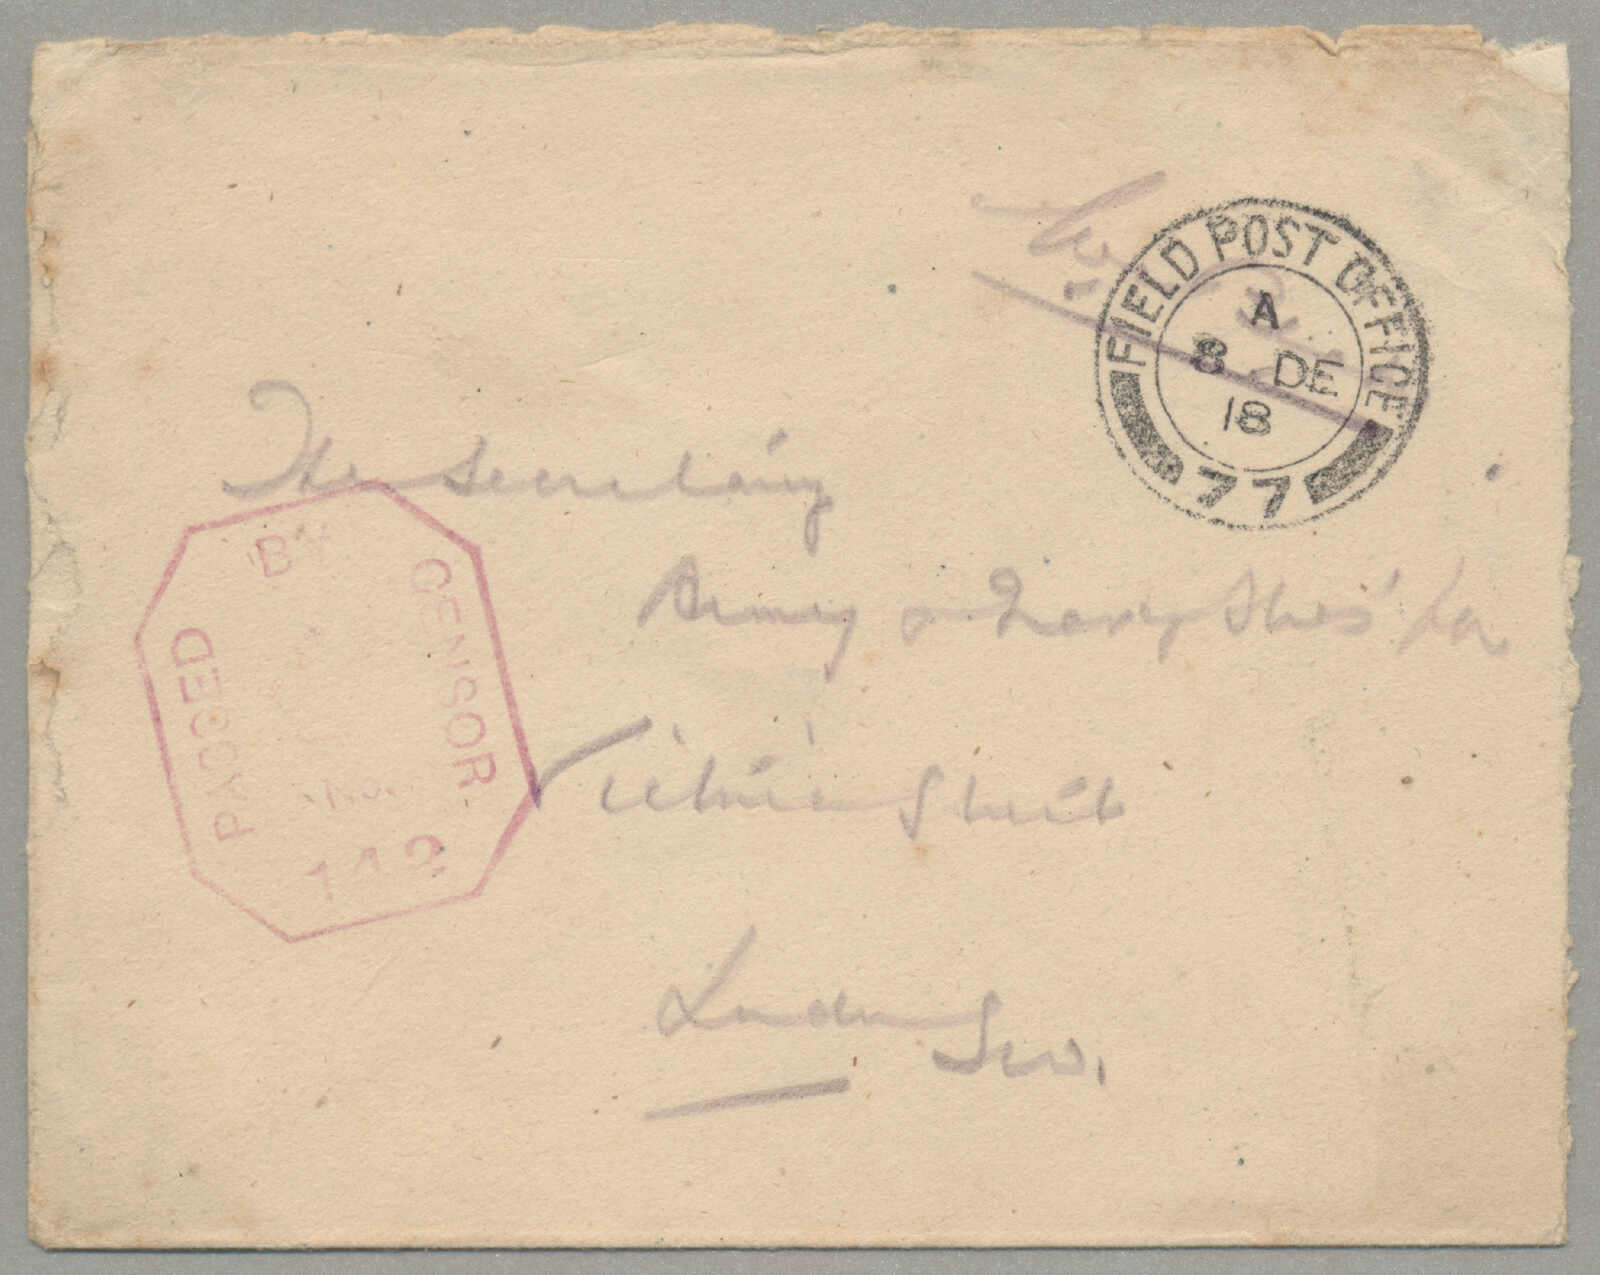 FIELD POST OFFICE
A
8 DE
18
77
The Secretary
Army & Navy Stores Ltd
Victoria Street
London SW.
PASSED BY CENSOR
No.